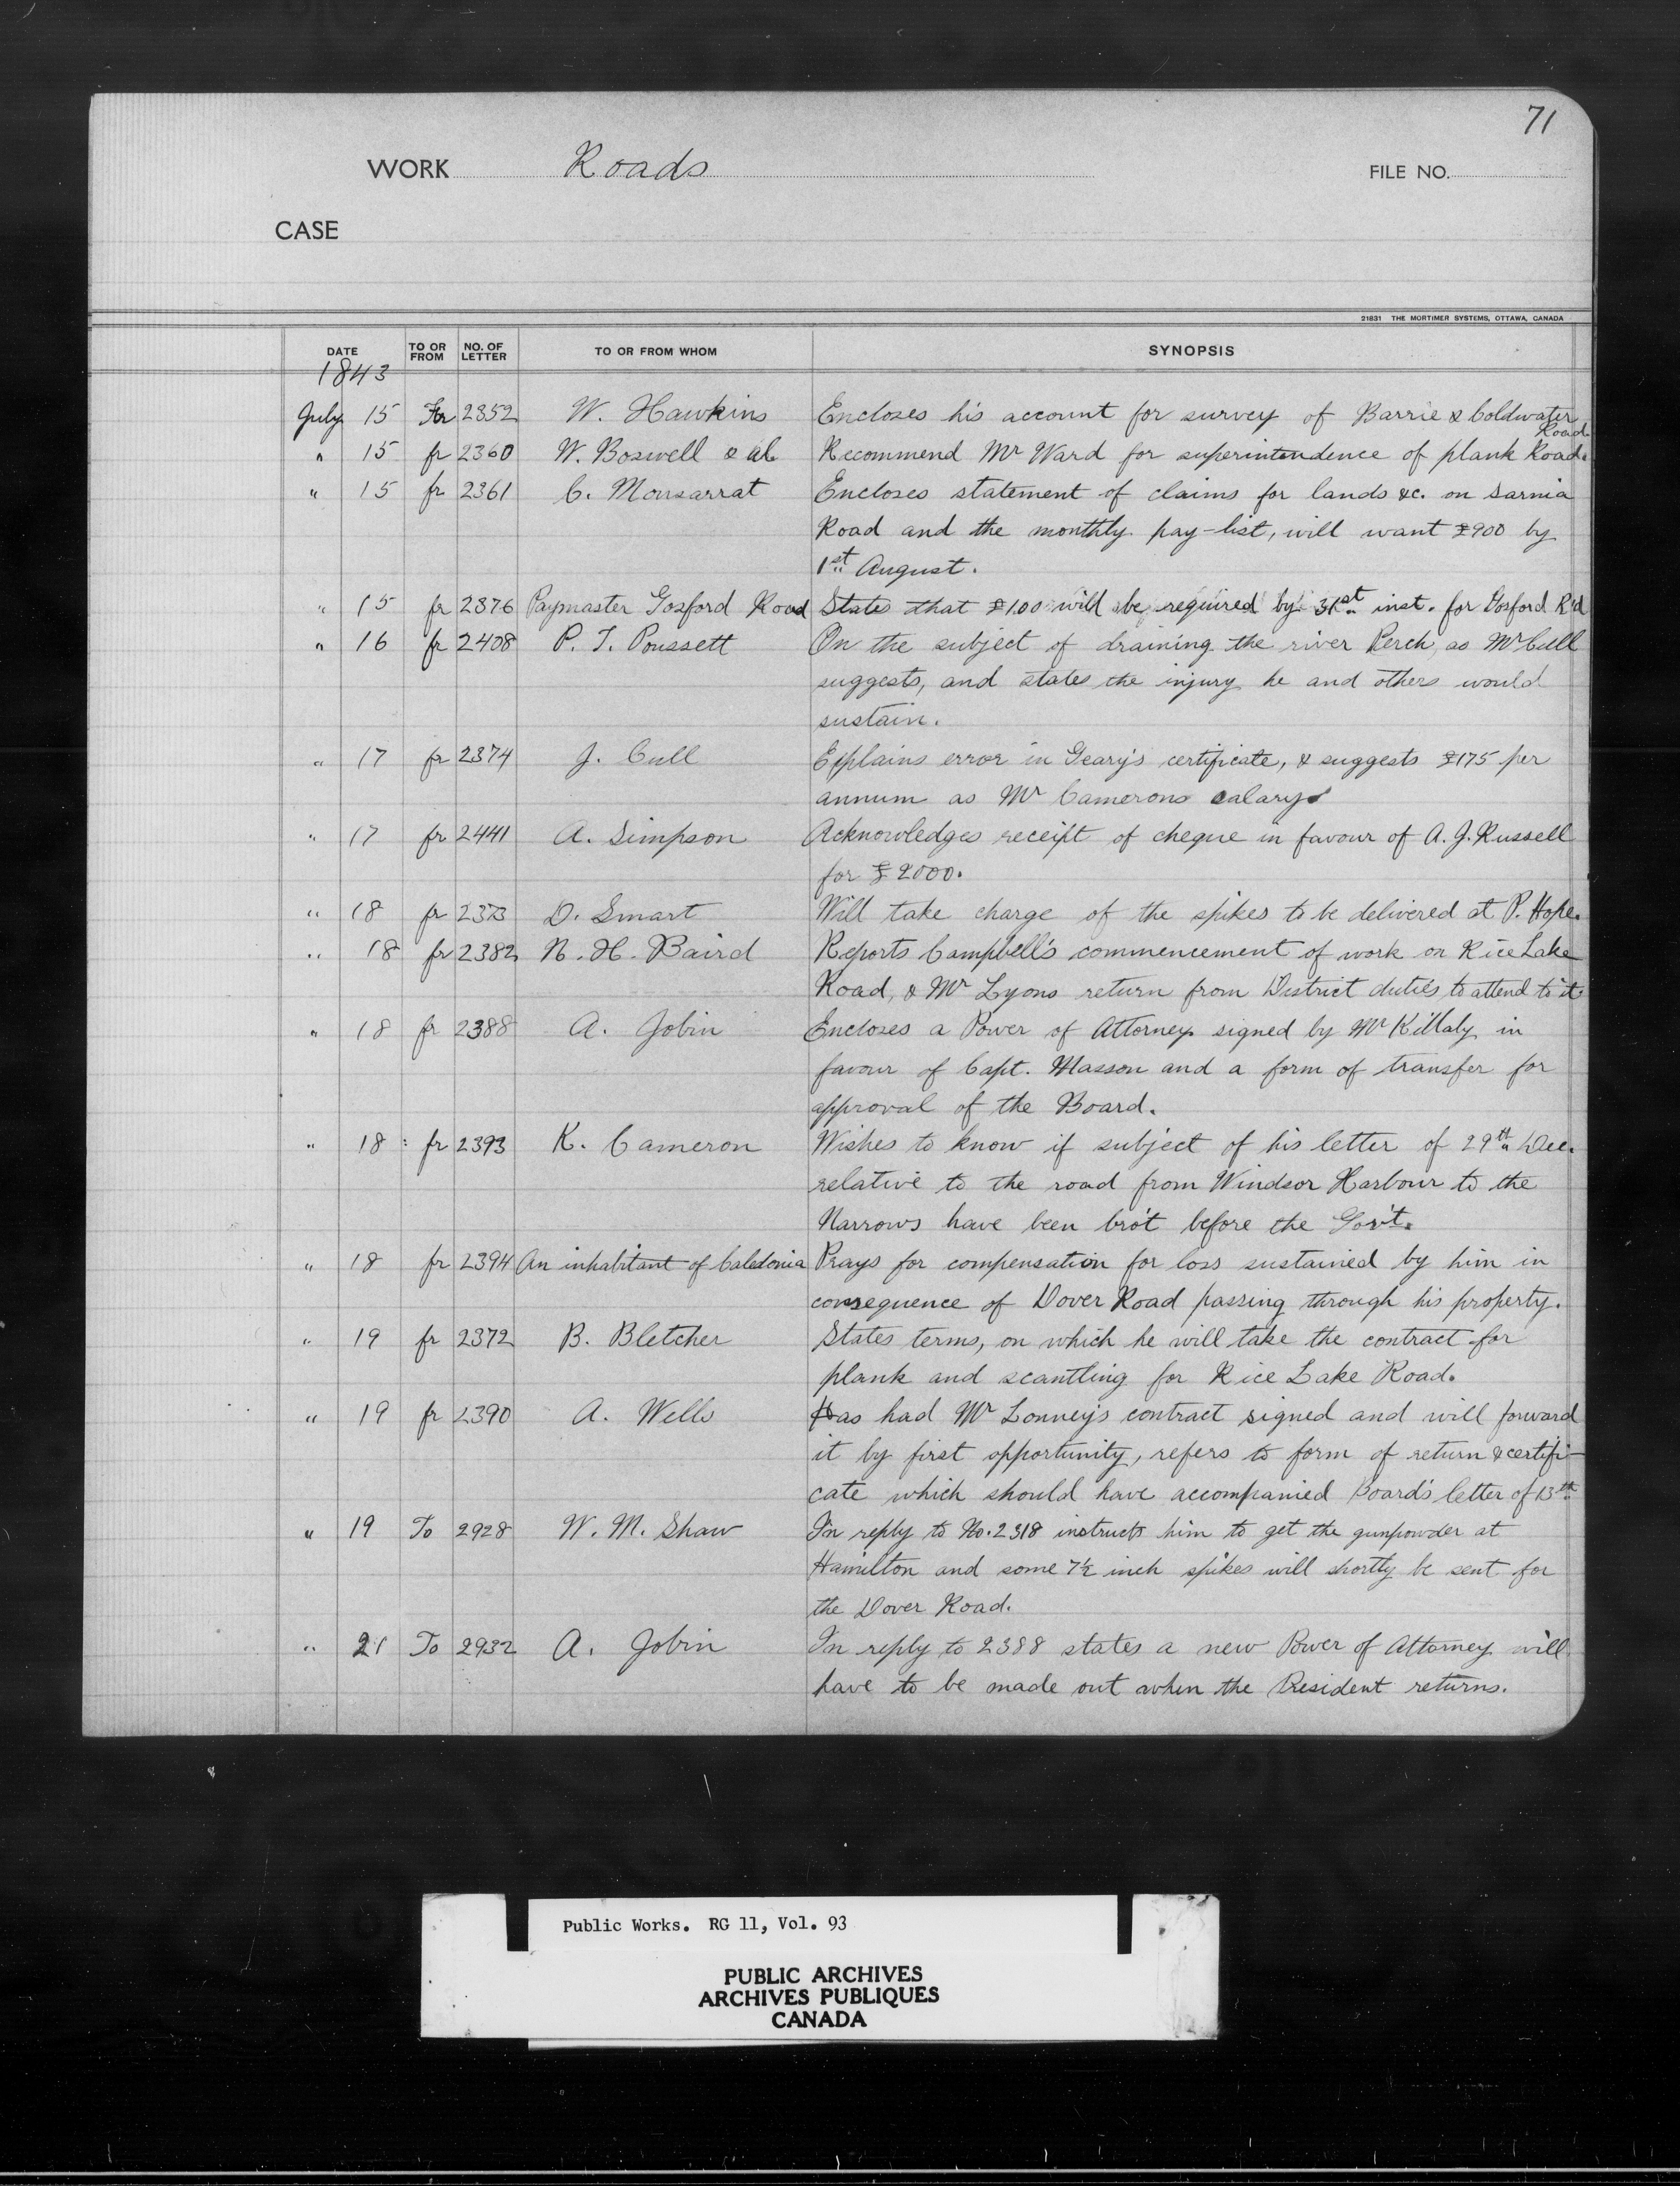 71
WORK Roads FILE NO.
CASE
21831 THE MORTIMER SYSTEMS, OTTAWA, CANADA
DATE TO OR FROM NO. OF LETTER TO OR FROM WHOM SYNOPSIS
1843
July 15 Fr 2352 W. Hawkins Encloses his account for survey of Barrie & Coldwater
Road.
" 15 fr 2360 W. Boswell & al. Recommend Mr Ward for superintendence of plank Road.
" 15 fr 2361 C. Monsarrat Encloses statement of claims for lands &c. on Sarnia
Road and the monthly pay-list, will want £900 by
1st August.
" 15 fr 2376 Paymaster Gosford Road States that £100 will be required by 31st inst. for Gosford R'd
" 16 fr 2408 P. T. Poussett On the subject of draining the river Perch, as Mr Cull
suggests, and states the injury he and others would
sustain.
" 17 fr 2374 J. Cull Explains error in Geary's certificate, & suggests £175 per
annum as Mr Camerons salary
" 17 fr 2441 A. Simpson Acknowledges receipt of cheque in favour of A. J. Russell
for £2000.
" 18 fr 2373 D. Smart Will take charge of the spikes to be delivered at P. Hope.
" 18 fr 2382 N. H. Baird Reports Campbell's commencement of work on Rice Lake
Road, & Mr Lyons return from District duties to attend to it
" 18 fr 2388 A. Jobin Encloses a Power of Attorney signed by Mr Killaly in
favour of Capt. Masson and a form of transfer for
approval of the Board.
" 18 fr 2393 K. Cameron Wishes to know if subject of his letter of 29th Dec.
relative to the road from Windsor Harbour to the
Narrows have been bro't before the Gov't.
" 18 fr 2394 An inhabitant of Caledonia Prays for compensation for loss sustained by him in
consequence of Dover Road passing through his property.
" 19 fr 2372 B. Bletcher States terms, on which he will take the contract for
plank and scantling for Rice Lake Road.
" 19 fr 2390 A. Wells Has had Mr Lonney's contract signed and will forward
it by first opportunity, refers to form of return & certifi-
cate which should have accompanied Board's letter of 13th
" 19 To 2928 W. M. Shaw In reply to No. 2318 instructs him to get the gunpowder at
Hamilton and some 7½ inch spikes will shortly be sent for
the Dover Road.
" 21 To 2932 A. Jobin In reply to 2388 states a new Power of Attorney will
have to be made out when the President returns.
Public Works. RG 11, Vol. 93
PUBLIC ARCHIVES
ARCHIVES PUBLIQUES
CANADA